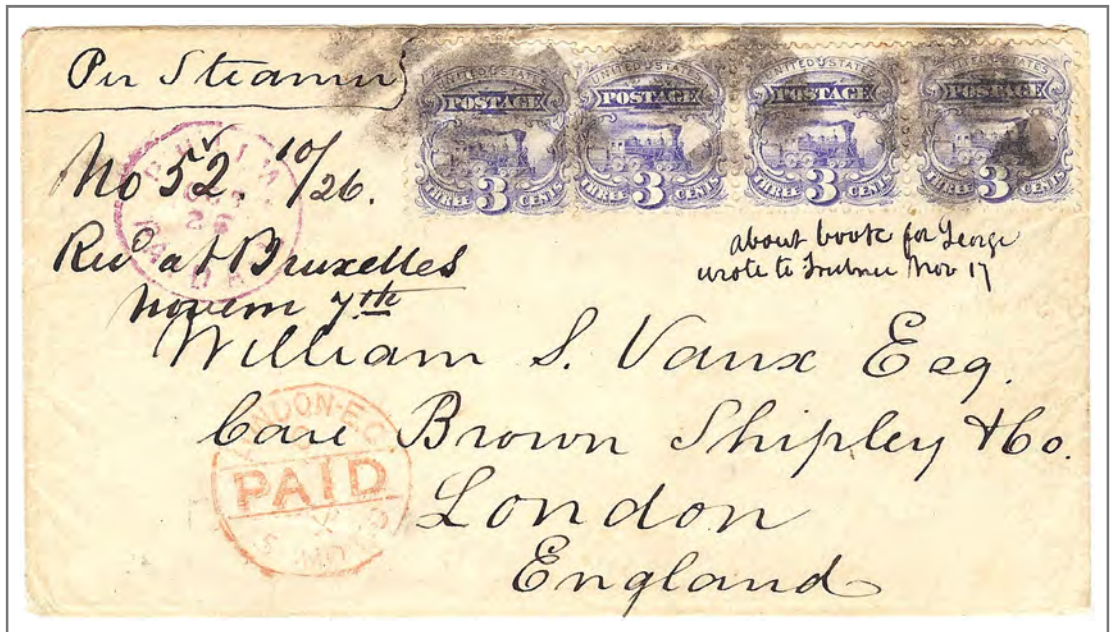 Per Steamer
UNITED STATES POSTAGE THREE 3 CENTS
UNITED STATES POSTAGE THREE 3 CENTS
UNITED STATES POSTAGE THREE 3 CENTS
UNITED STATES POSTAGE THREE 3 CENTS
No 52. 10/26.
26
Recd at Bruxelles
Novem 7th
about book for George
wrote to Trubner Nov 17
William S. Vaux Esq.
Care Brown Shipley & Co.
London
England
LONDON-E.C.
PAID